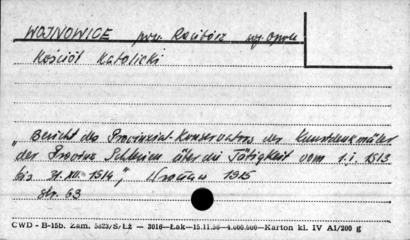 WOJNOWICE pow. Racibórz woj. Opole
Kościół Katolicki
„Bericht des Provinzial-Konservators der Kunstdenkmäler
der Provinz Schlesien über die Tätigkeit vom 1.I. 1913
bis 31.XII. 1914", Breslau 1915
str. 63
CWD - B-15b. Zam. 5623/S/Łż — 3016—Łak—15.11.56—4.000.000—Karton kl. IV A1/200 g